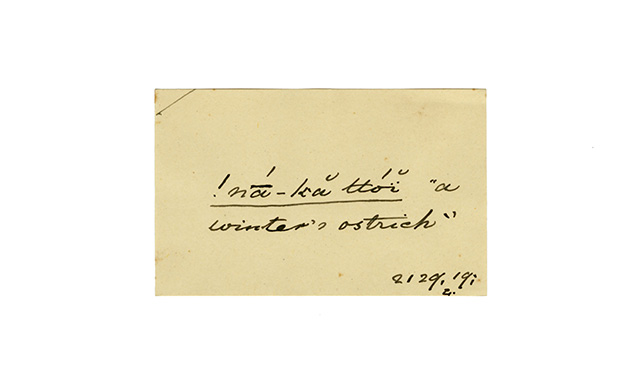 !nā́-kă ttóĭ̈ "a
winter's ostrich"
2129, 19;